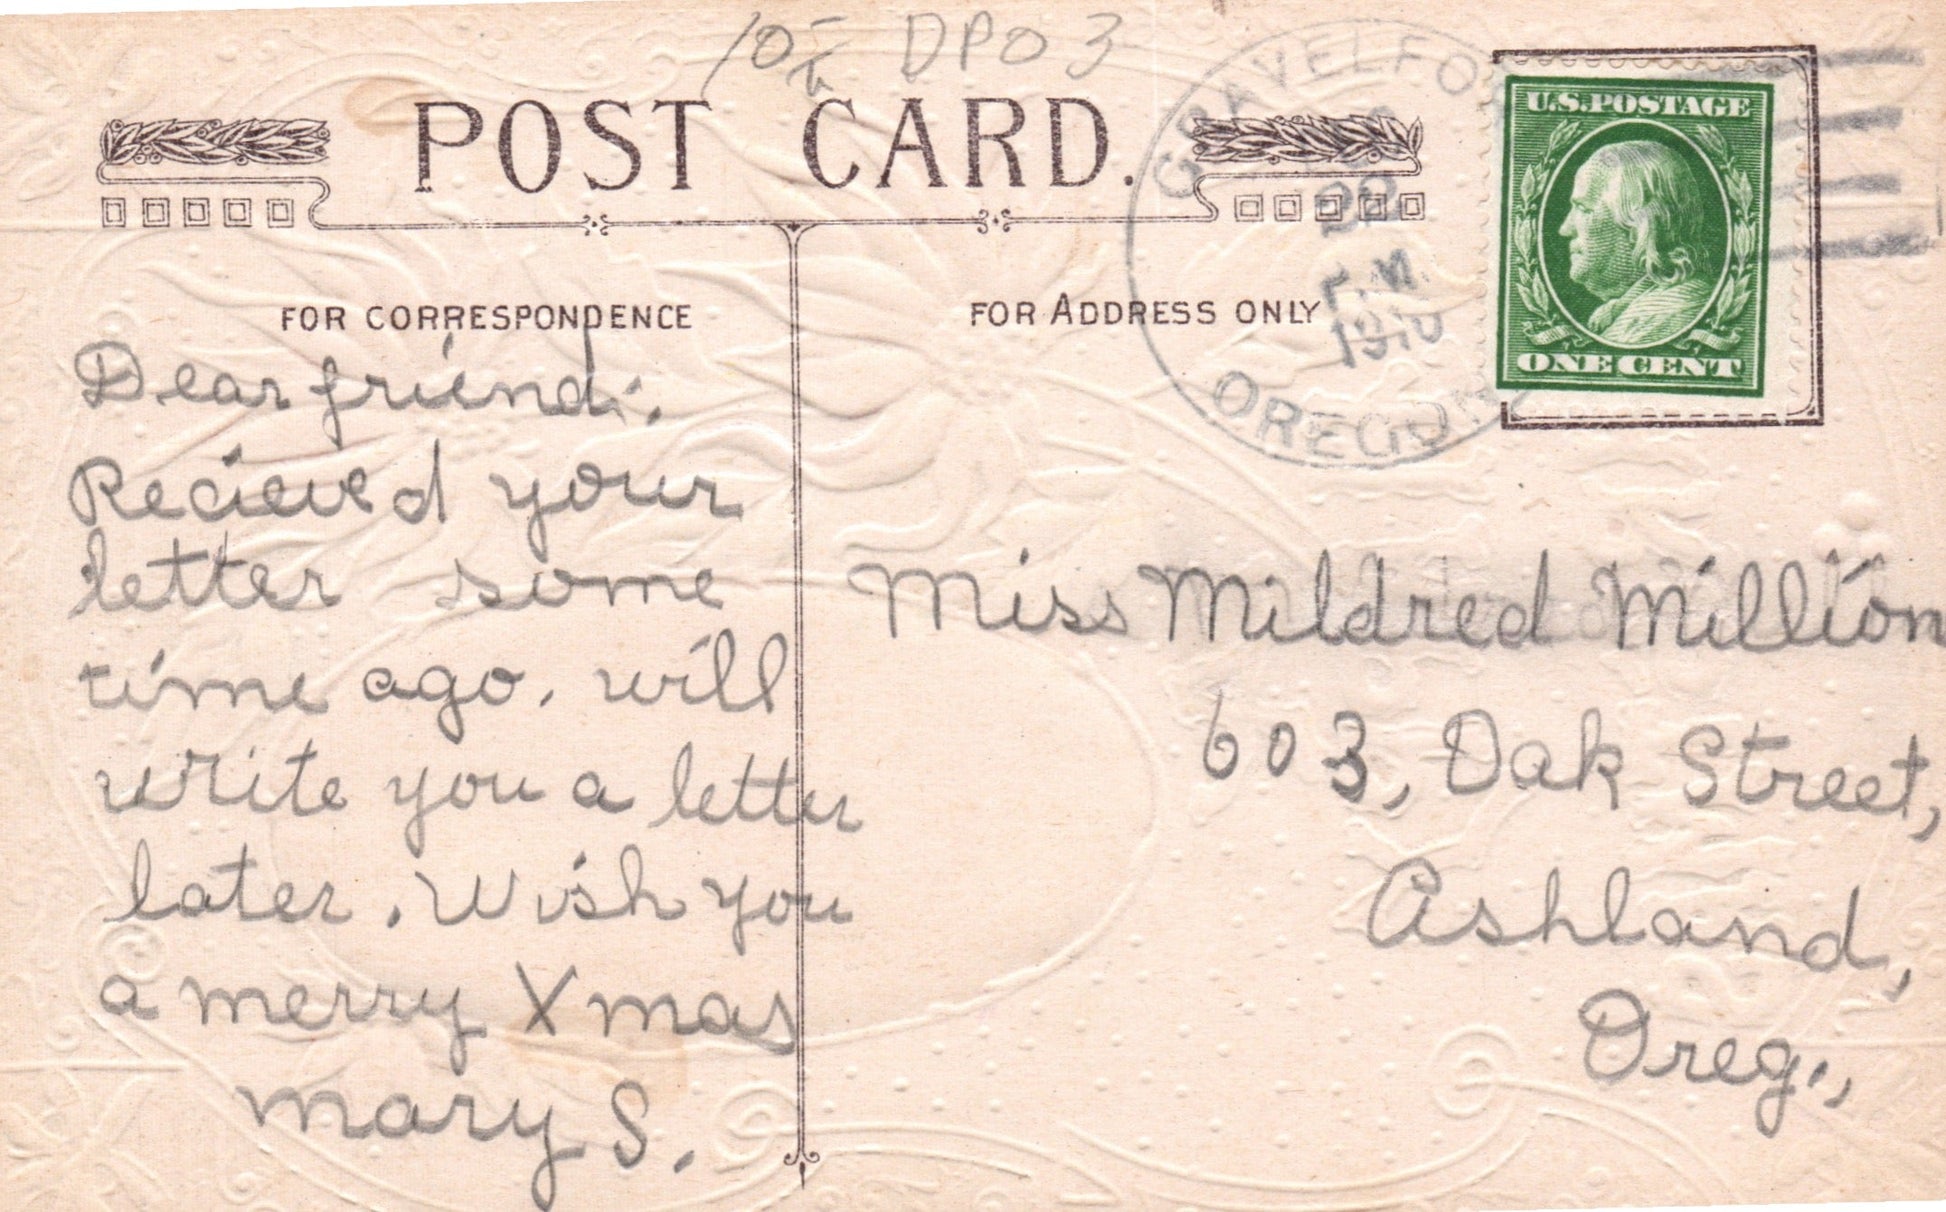 10 DPO 3
POST CARD.
GRAVELFO
22
P.M.
1910
OREGON
U.S.POSTAGE
ONE CENT
FOR CORRESPONDENCE
FOR ADDRESS ONLY
Dear friend:
Recieved your
letter some
time ago. will
write you a letter
later. Wish you
a merry Xmas
Mary S.
Miss Mildred Million
603, Oak Street,
Ashland,
Oreg.,